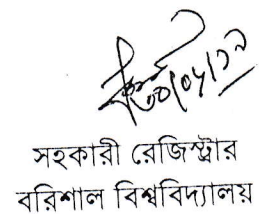 সহকারী রেজিস্ট্রার
বরিশাল বিশ্ববিদ্যালয়